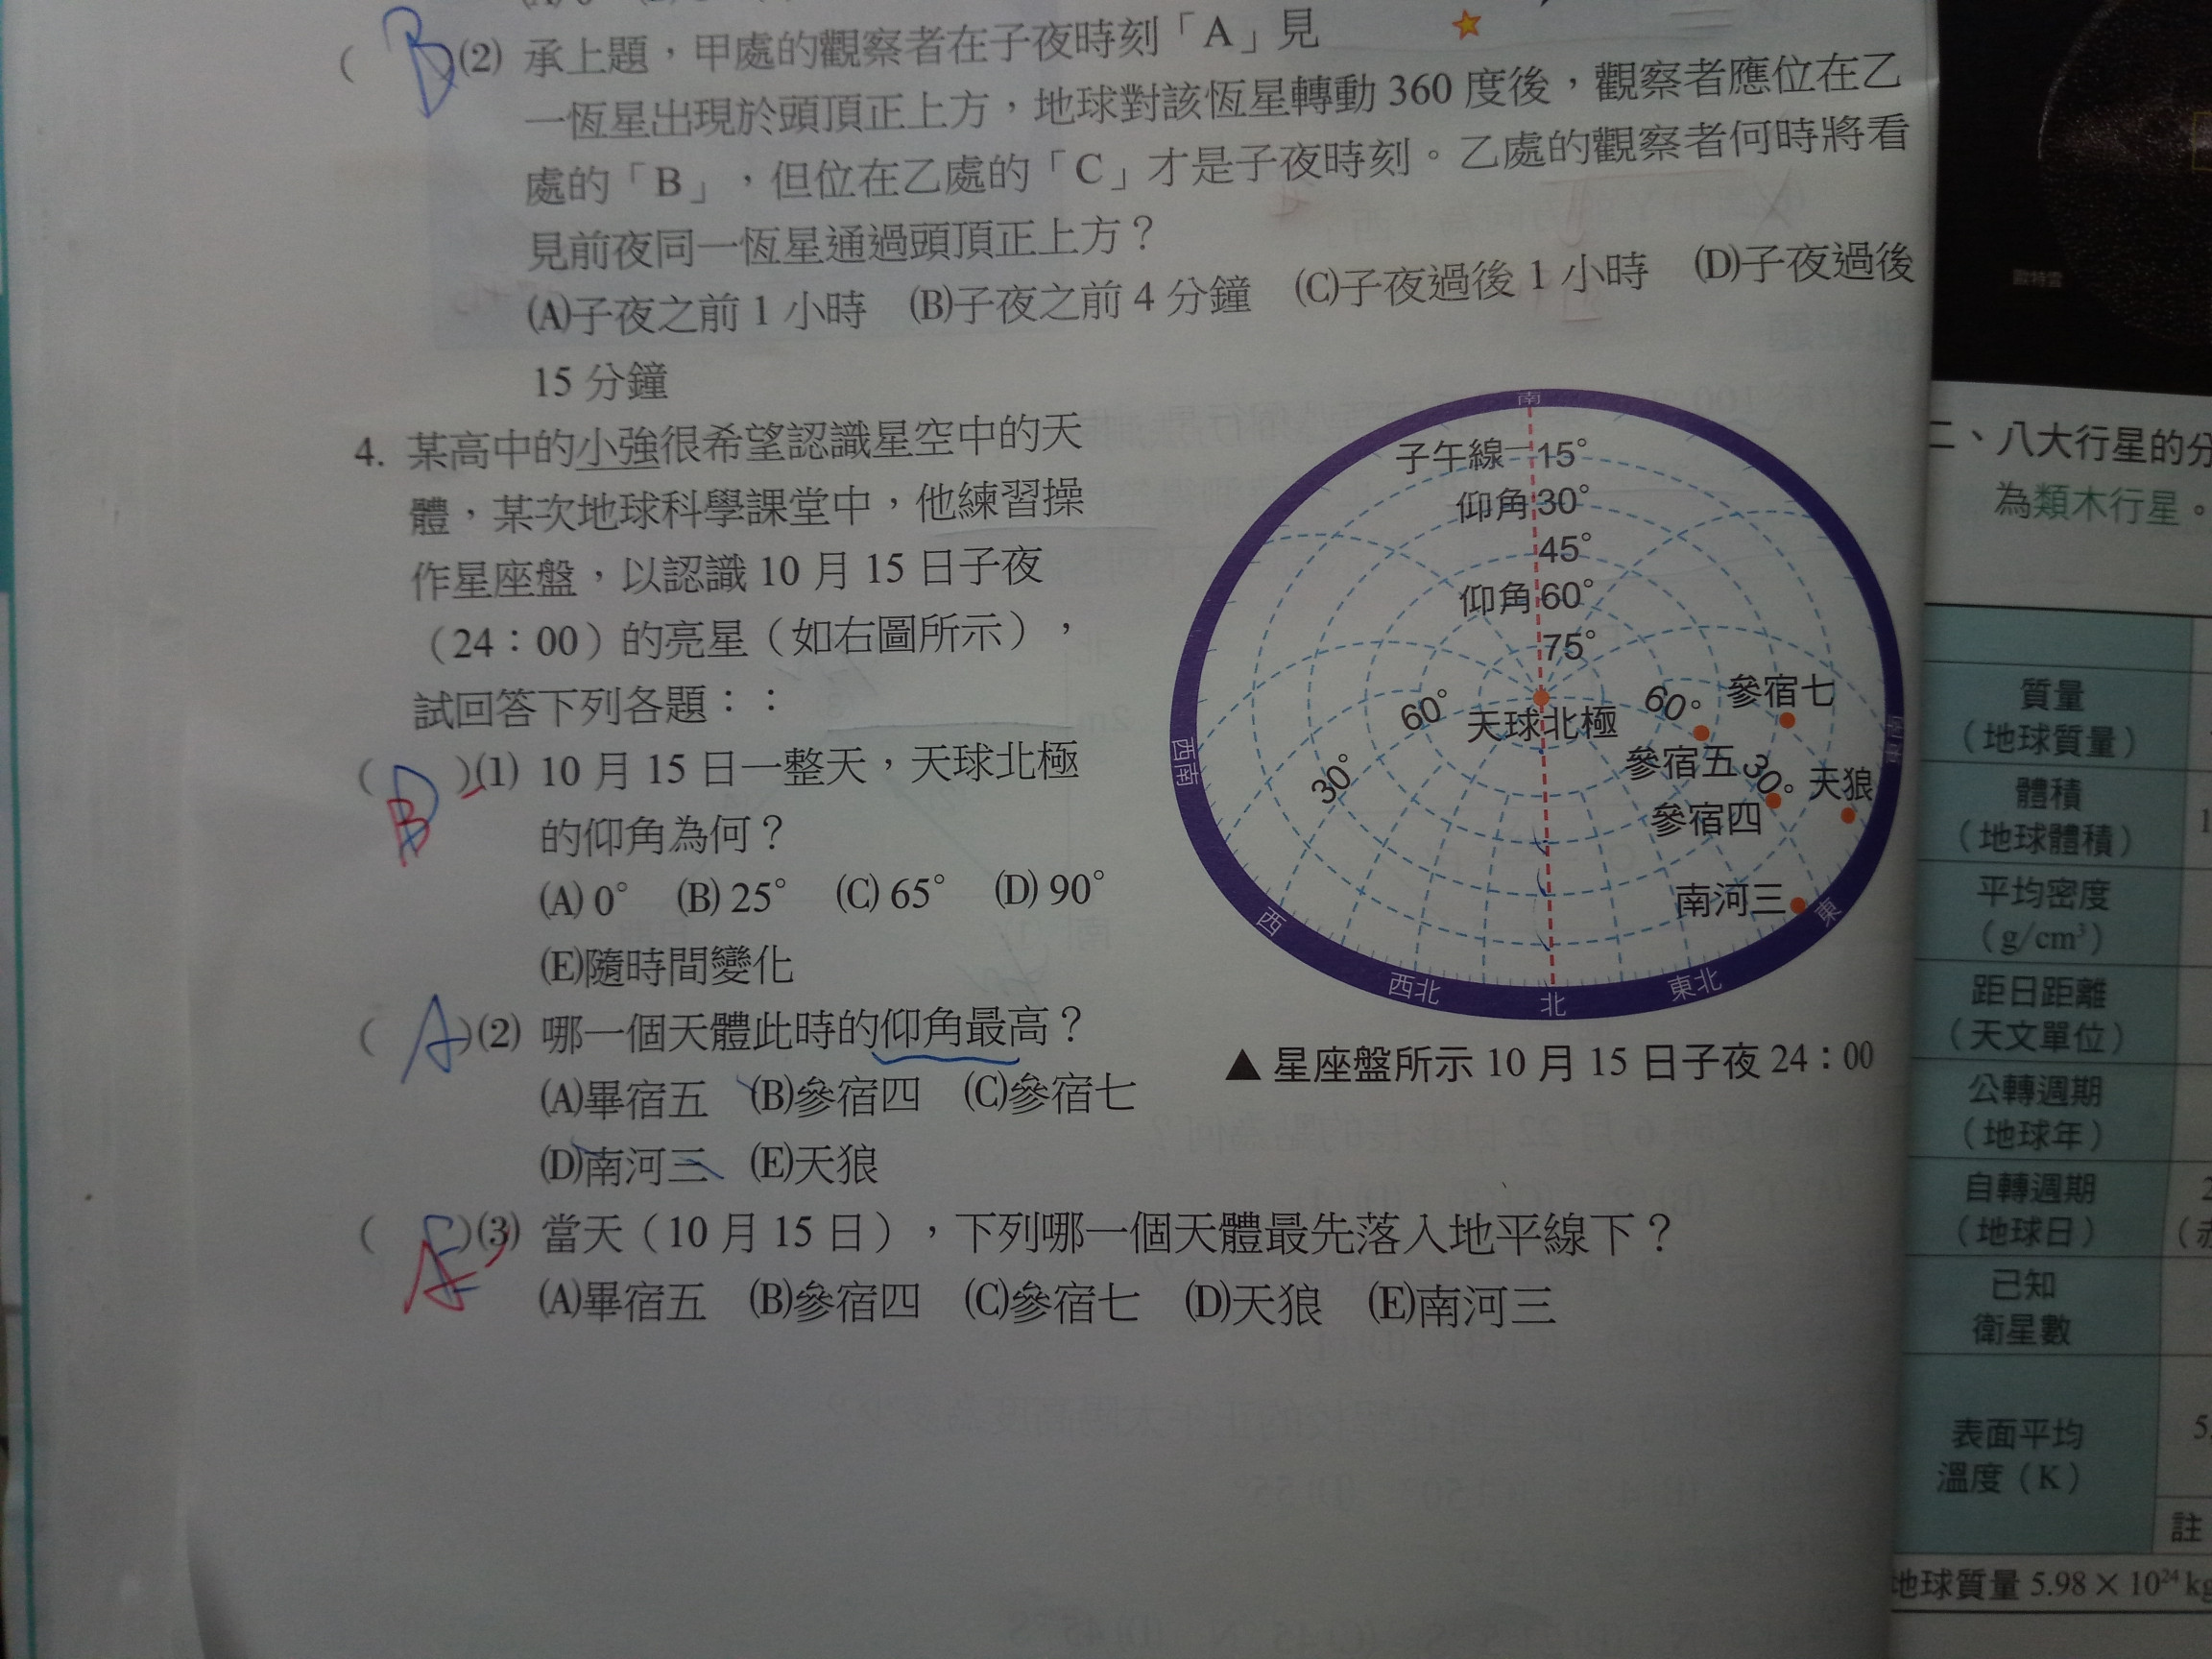 B (2) 承上題，甲處的觀察者在子夜時刻「A」見
一恆星出現於頭頂正上方，地球對該恆星轉動 360 度後，觀察者應位在乙
處的「B」，但位在乙處的「C」才是子夜時刻。乙處的觀察者何時將看
見前夜同一恆星通過頭頂正上方？
(A)子夜之前 1 小時 (B)子夜之前 4 分鐘 (C)子夜過後 1 小時 (D)子夜過後
15 分鐘
4. 某高中的小強很希望認識星空中的天
體，某次地球科學課堂中，他練習操
作星座盤，以認識 10 月 15 日子夜
（24：00）的亮星（如右圖所示），
試回答下列各題：：
( B )(1) 10 月 15 日一整天，天球北極
的仰角為何？
(A) 0° (B) 25° (C) 65° (D) 90°
(E)隨時間變化
( A )(2) 哪一個天體此時的仰角最高？
(A)畢宿五 (B)參宿四 (C)參宿七
(D)南河三 (E)天狼
( A )(3) 當天（10 月 15 日），下列哪一個天體最先落入地平線下？
(A)畢宿五 (B)參宿四 (C)參宿七 (D)天狼 (E)南河三
南
子午線 15°
仰角 30°
45°
仰角 60°
75°
60°
天球北極
60°
參宿七
參宿五
30°
30°
天狼
參宿四
南河三
西南
東
西
西北
北
東北
▲ 星座盤所示 10 月 15 日子夜 24：00
歐特雲
二、八大行星的分
為類木行星。
質量
（地球質量）
體積
（地球體積）
平均密度
（g/cm³）
距日距離
（天文單位）
公轉週期
（地球年）
自轉週期
（地球日）
已知
衛星數
表面平均
溫度（K）
註
地球質量 5.98 × 10²⁴ kg